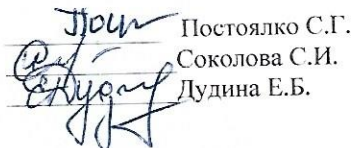 Постоялко С.Г.
Соколова С.И.
Дудина Е.Б.